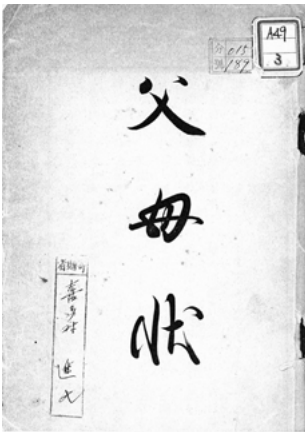 A49
3
分 015
189
父母状
喜多村 進 氏